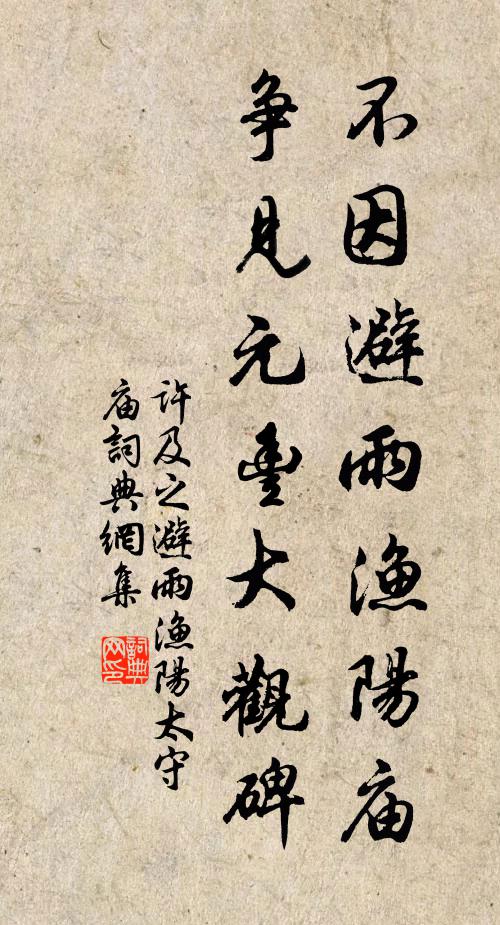 不因避雨漁陽庙
争見元豊大觀碑
許及之避雨漁陽太守
庙詞典網集
詞典网印